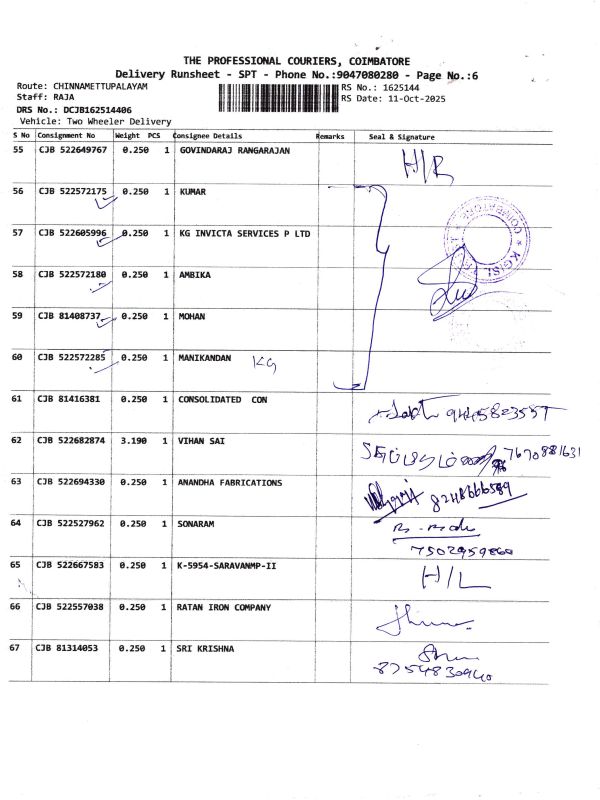 THE PROFESSIONAL COURIERS, COIMBATORE
Delivery Runsheet - SPT - Phone No.:9047080280 - Page No.:6
Route: CHINNAMETTUPALAYAM RS No.: 1625144
Staff: RAJA RS Date: 11-Oct-2025
DRS No.: DCJB162514406
Vehicle: Two Wheeler Delivery
S No Consignment No Weight PCS Consignee Details Remarks Seal & Signature
55 CJB 522649767 0.250 1 GOVINDARAJ RANGARAJAN H/R
56 CJB 522572175 0.250 1 KUMAR
57 CJB 522605996 0.250 1 KG INVICTA SERVICES P LTD
58 CJB 522572180 0.250 1 AMBIKA
59 CJB 81408737 0.250 1 MOHAN
60 CJB 522572285 0.250 1 MANIKANDAN KG
61 CJB 81416381 0.250 1 CONSOLIDATED CON
62 CJB 522682874 3.190 1 VIHAN SAI 7670881631
63 CJB 522694330 0.250 1 ANANDHA FABRICATIONS 8248666589
64 CJB 522527962 0.250 1 SONARAM
7502959860
65 CJB 522667583 0.250 1 K-5954-SARAVANMP-II H/L
66 CJB 522557038 0.250 1 RATAN IRON COMPANY
67 CJB 81314053 0.250 1 SRI KRISHNA
8754830940